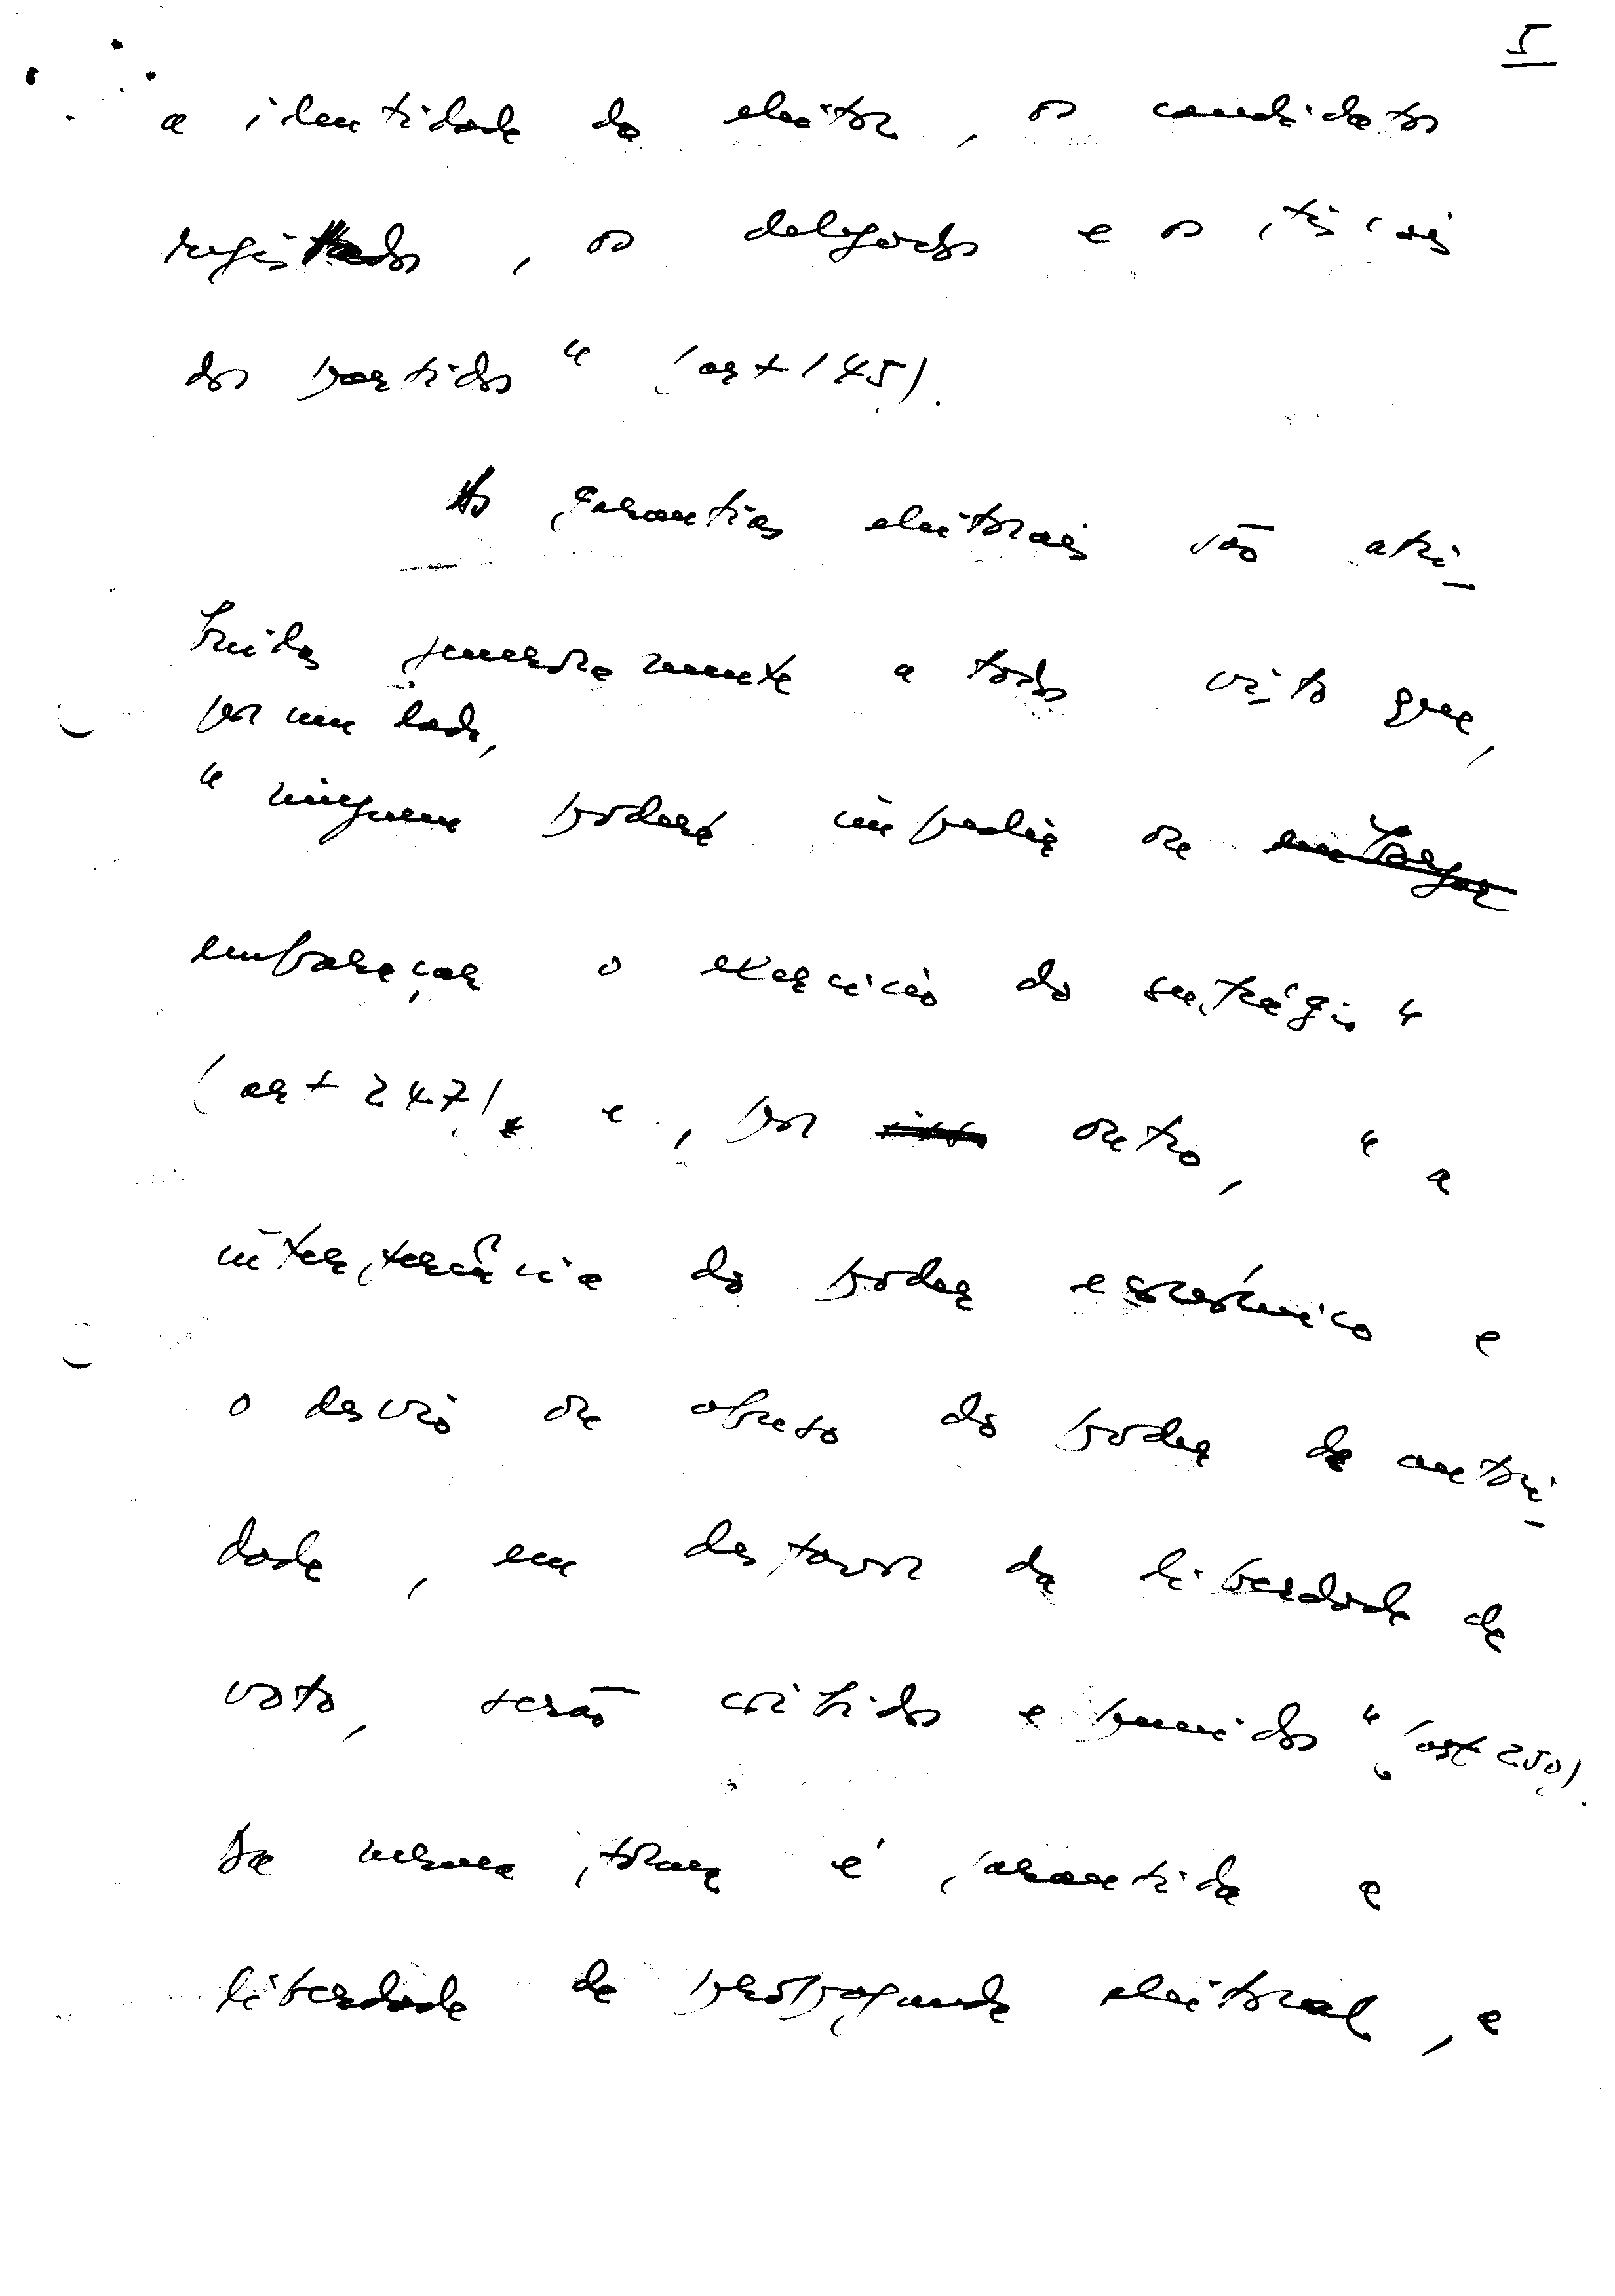 5
a identidade do eleitor, os candidatos
registrados, os delegados e os fiscais
dos partidos" (art 145).
As garantias eleitorais são atri-
buidas genericamente a todos visto que,
por um lado,
"ninguem poderá impedir ou embargar
embaraçar o exercicio do sufrágio"
(art 247), e, por isso outro, "a
interferência do poder econômico e
o desvio ou abuso do poder de autori-
dade, em desfavor da liberdade de
voto, serão coibidos e punidos" (art 250).
Da mesma forma é garantida a
liberdade de propaganda eleitoral, e